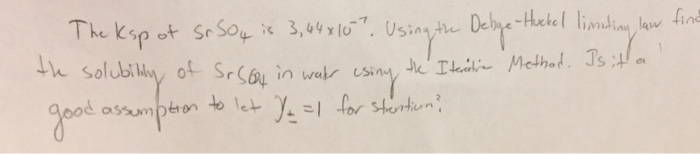 The Ksp of SrSO4 is 3,44x10^-7. Using the Debye-Huckel limiting law find
the solubility of SrSO4 in water using the Iterative Method. Is it a
good assumption to let γ± =1 for strontium?